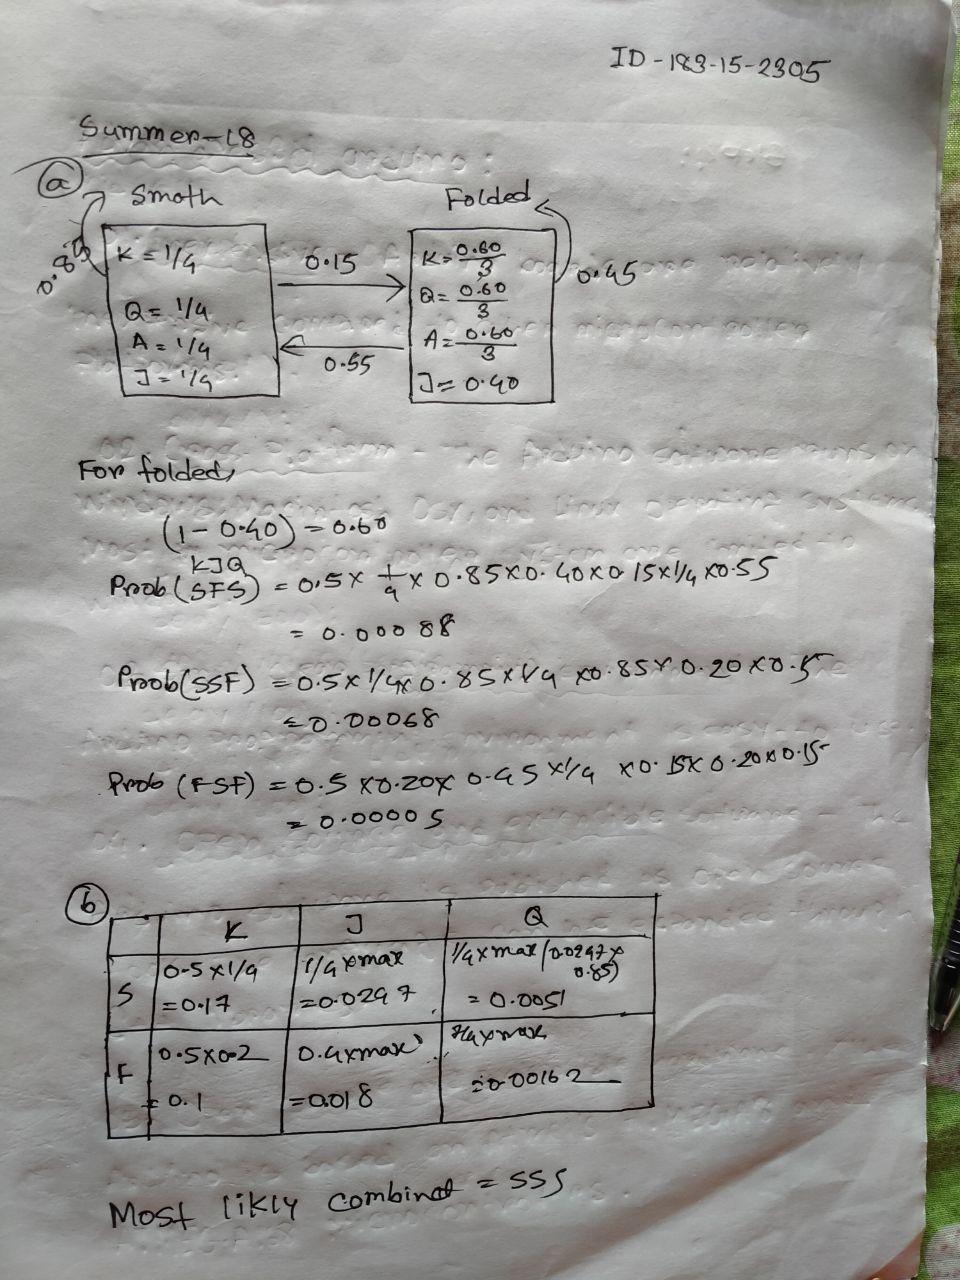 ID-183-15-2305
Summer-18
(a)
Smoth
Folded
0.85
K = 1/4
Q = 1/4
A = 1/4
J = 1/4
0.15
0.55
K = 0.60/3
Q = 0.60/3
A = 0.60/3
J = 0.40
0.45
For folded,
(1 - 0.40) = 0.60
KJQ
Prob (SFS) = 0.5 x 1/4 x 0.85 x 0.40 x 0.15 x 1/4 x 0.55
= 0.00088
Prob (SSF) = 0.5 x 1/4 x 0.85 x 1/4 x 0.85 x 0.20 x 0.15
= 0.00068
Prob (FSF) = 0.5 x 0.20 x 0.45 x 1/4 x 0.15 x 0.20 x 0.15
= 0.00005
(b)
K J Q
S
0.5 x 1/4
= 0.17
1/4 x max
= 0.0297
1/4 x max (0.0297 x
0.85)
= 0.0051
F
0.5 x 0.2
= 0.1
0.4 x max
= 0.018
x max
= 0.00162
Most likly combinat = SSS